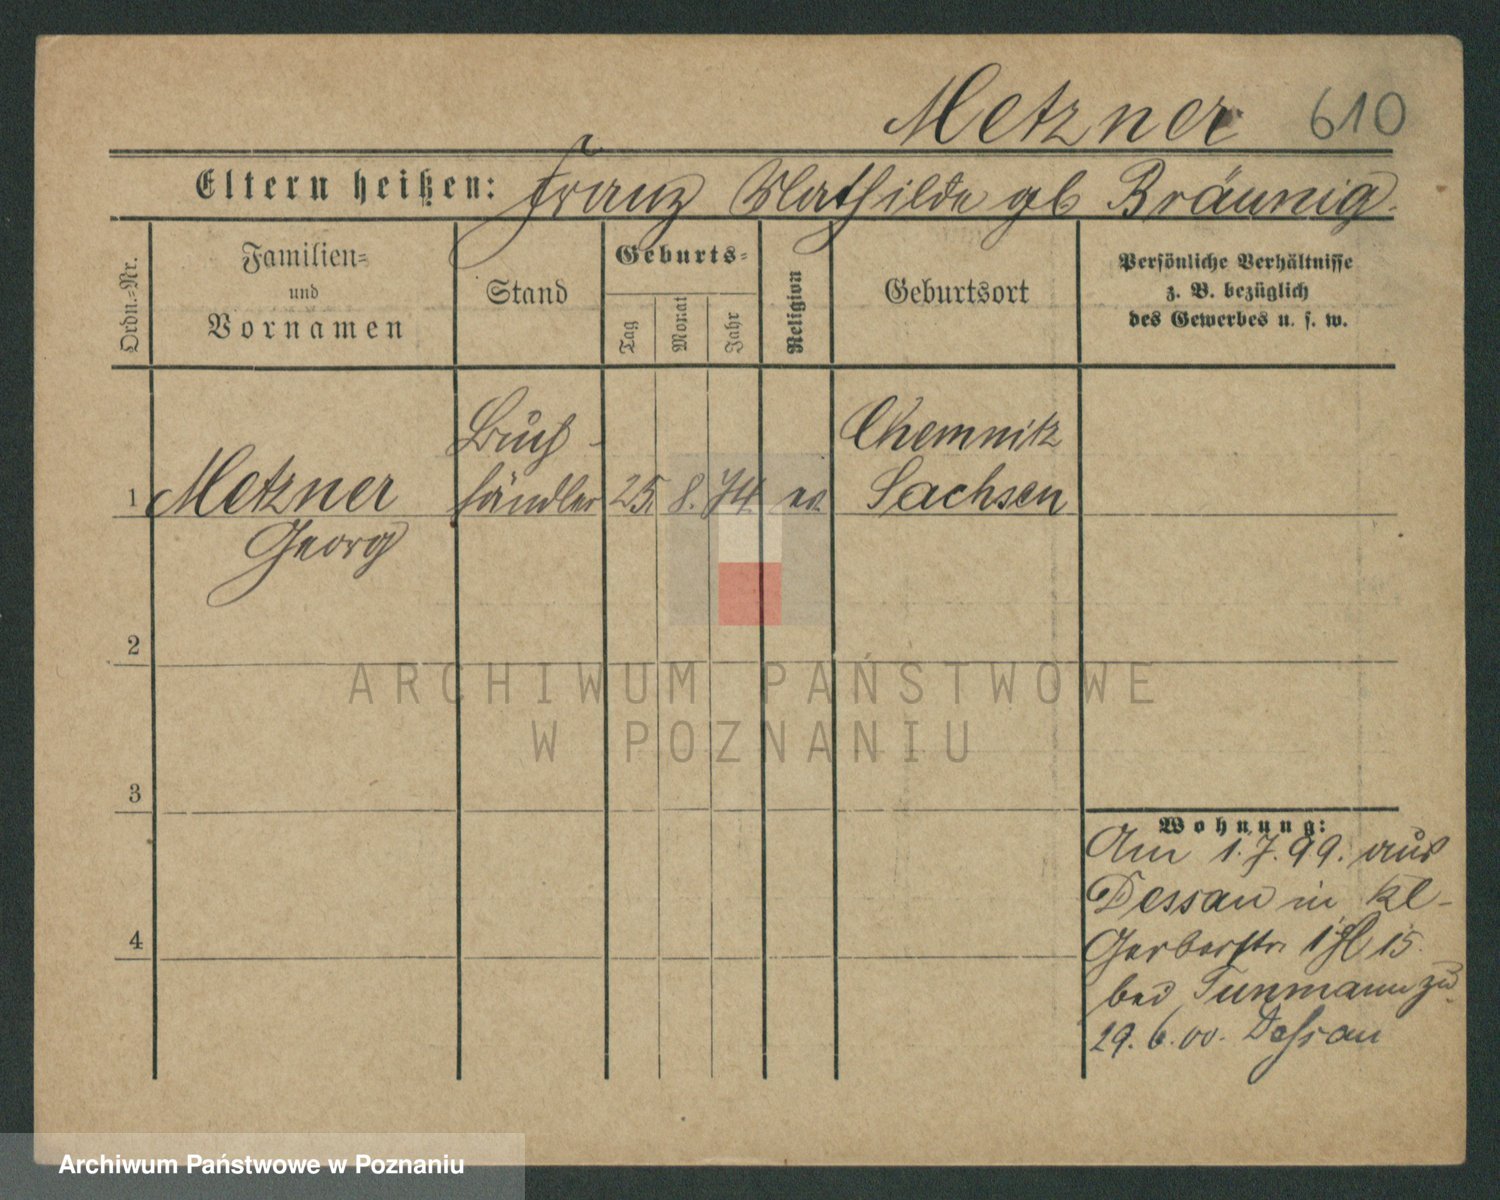 Metzner 610
Eltern heißen: Franz Mathilde gb Bräunig.
Ordn.=Nr.
Familien=
und
Vornamen
Stand
Geburts=
Tag
Monat
Jahr
Religion
Geburtsort
Persönliche Verhältnisse
z. B. bezüglich
des Gewerbes u. s. w.
Buch-
händler
Chemnitz
1 Metzner 25. 8. 74. ev. Sachsen
Georg
2
ARCHIWUM PAŃSTWOWE
W POZNANIU
3
Wohnung:
Am 1.7.99. aus
Dessau in Kl-
Gerberstr. 15.
4
bei zu
29.6.00. Dessau
Archiwum Państwowe w Poznaniu